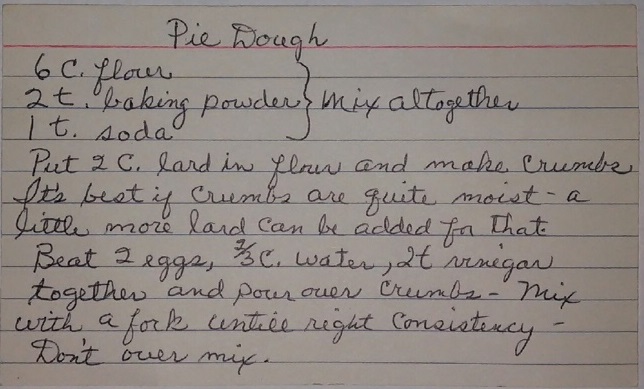 Pie Dough
6 C. flour
2 t. baking powder } Mix altogether
1 t. soda
Put 2 C. lard in flour and make Crumbs
It's best if Crumbs are quite moist - a
little more lard can be added for that.
Beat 2 eggs, 2/3 C. water, 2t vinegar
together and pour over Crumbs - Mix
with a fork until right Consistency -
Don't over mix.